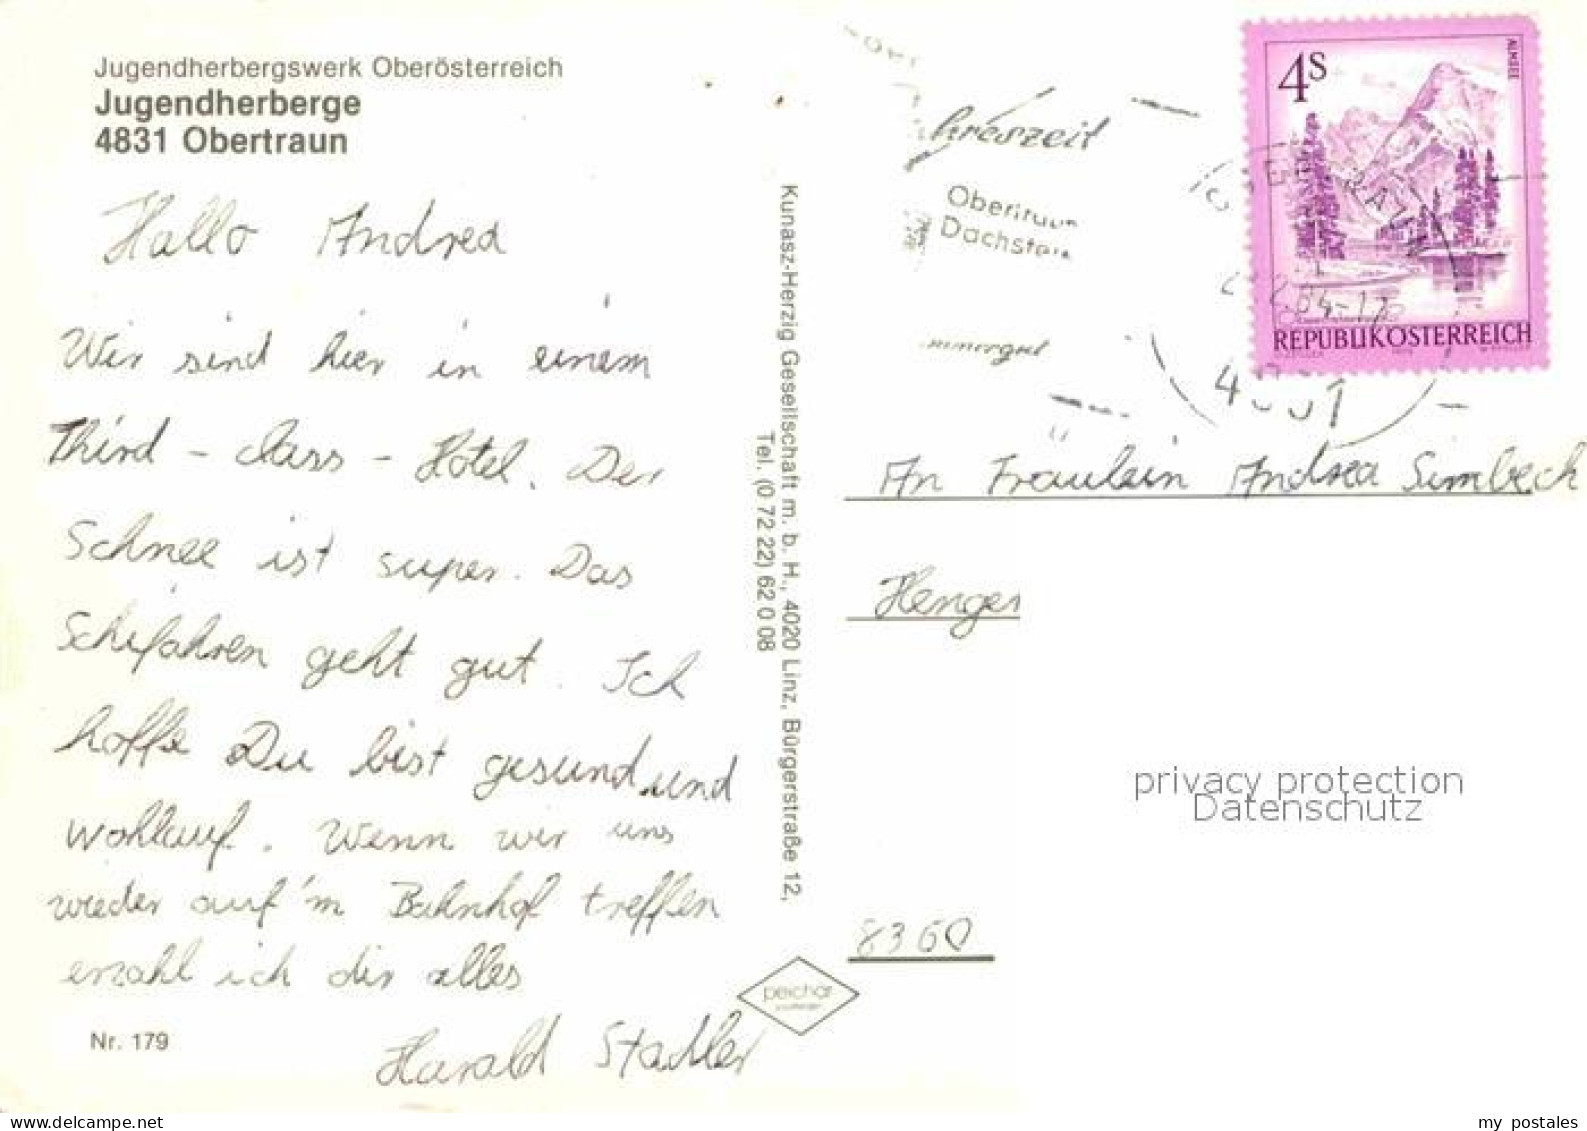 Jugendherbergswerk Oberösterreich
Jugendherberge
4831 Obertraun
Hallo Andrea
Wir sind hier in einem
Third - class - Hotel. Der
Schnee ist super. Das
Schifahren geht gut. Ich
hoffe Du bist gesund und
wohlauf. Wenn wir uns
wieder auf'm Bahnhof treffen
erzahl ich dir alles
Harald Stadler
Nr. 179
Kunasz-Herzig Gesellschaft m. b. H., 4020 Linz, Bürgerstraße 12,
Tel. (0 72 22) 62 0 08
peichar
4S
ALMSEE
REPUBLIK ÖSTERREICH
Obertraun
Dachstein
An Fräulein Andrea Simbeck
Henger
privacy protection
Datenschutz
8360
my-store
my postales